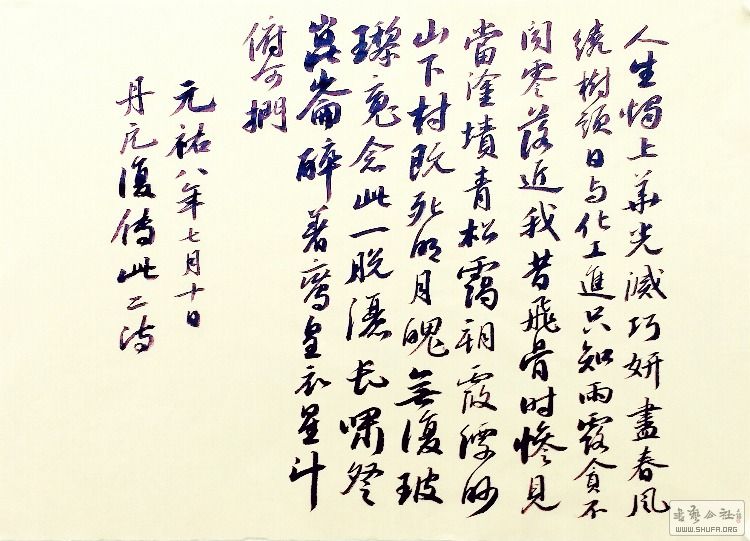 人生燭上華光滅巧妍盡春風
繞樹頭日与化工進只知雨露貪不
聞零落近我昔飛骨時慘見
當塗墳青松靄朝霞縹緲
山下村既死明月魄無復玻
瓈魂念此一脫灑長嘯祭
崑崙醉著鸞皇衣星斗
俯可捫
元祐八年七月十日
丹元復傳此二詩
书艺公社
WWW.SHUFA.ORG